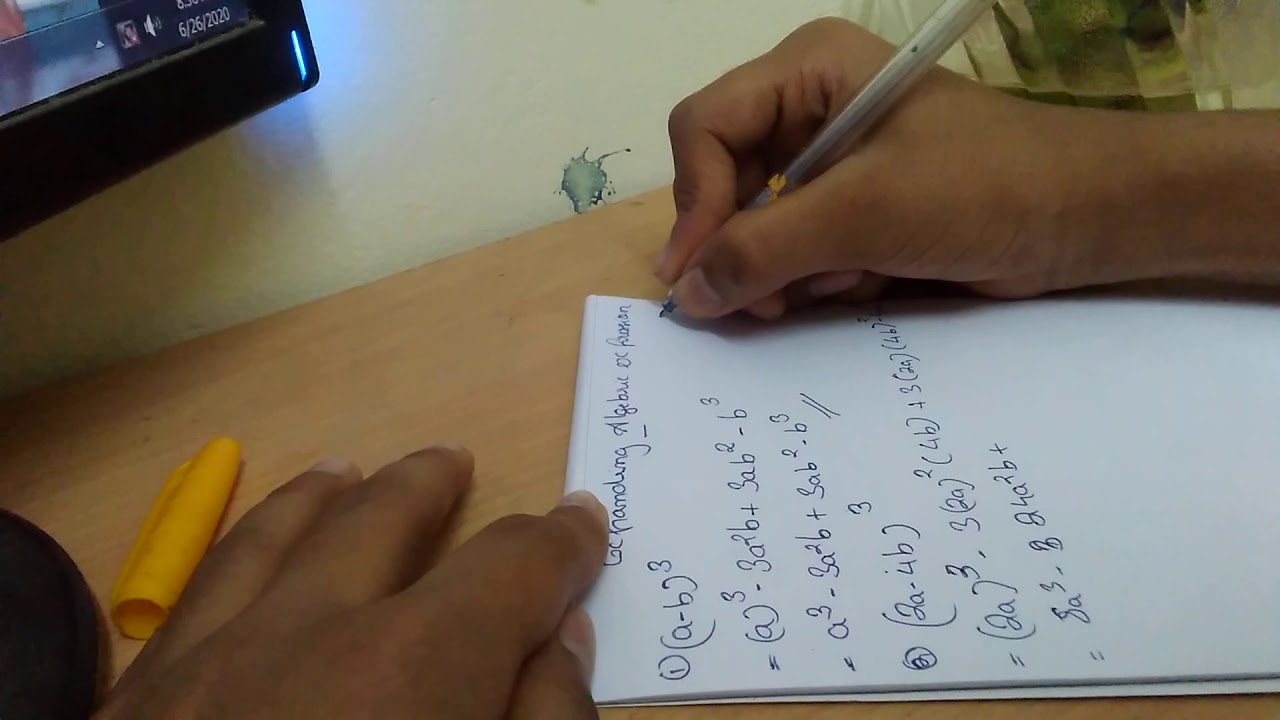 8:30
6/26/2020
Expanding Algebric expression
① (a-b)³
= (a)³ - 3a²b + 3ab² - b³
= a³ - 3a²b + 3ab² - b³ //
② (2a-4b)³
= (2a)³ - 3(2a)²(4b) + 3(2a)(4b)²
= 8a³ - 3 24a²b +